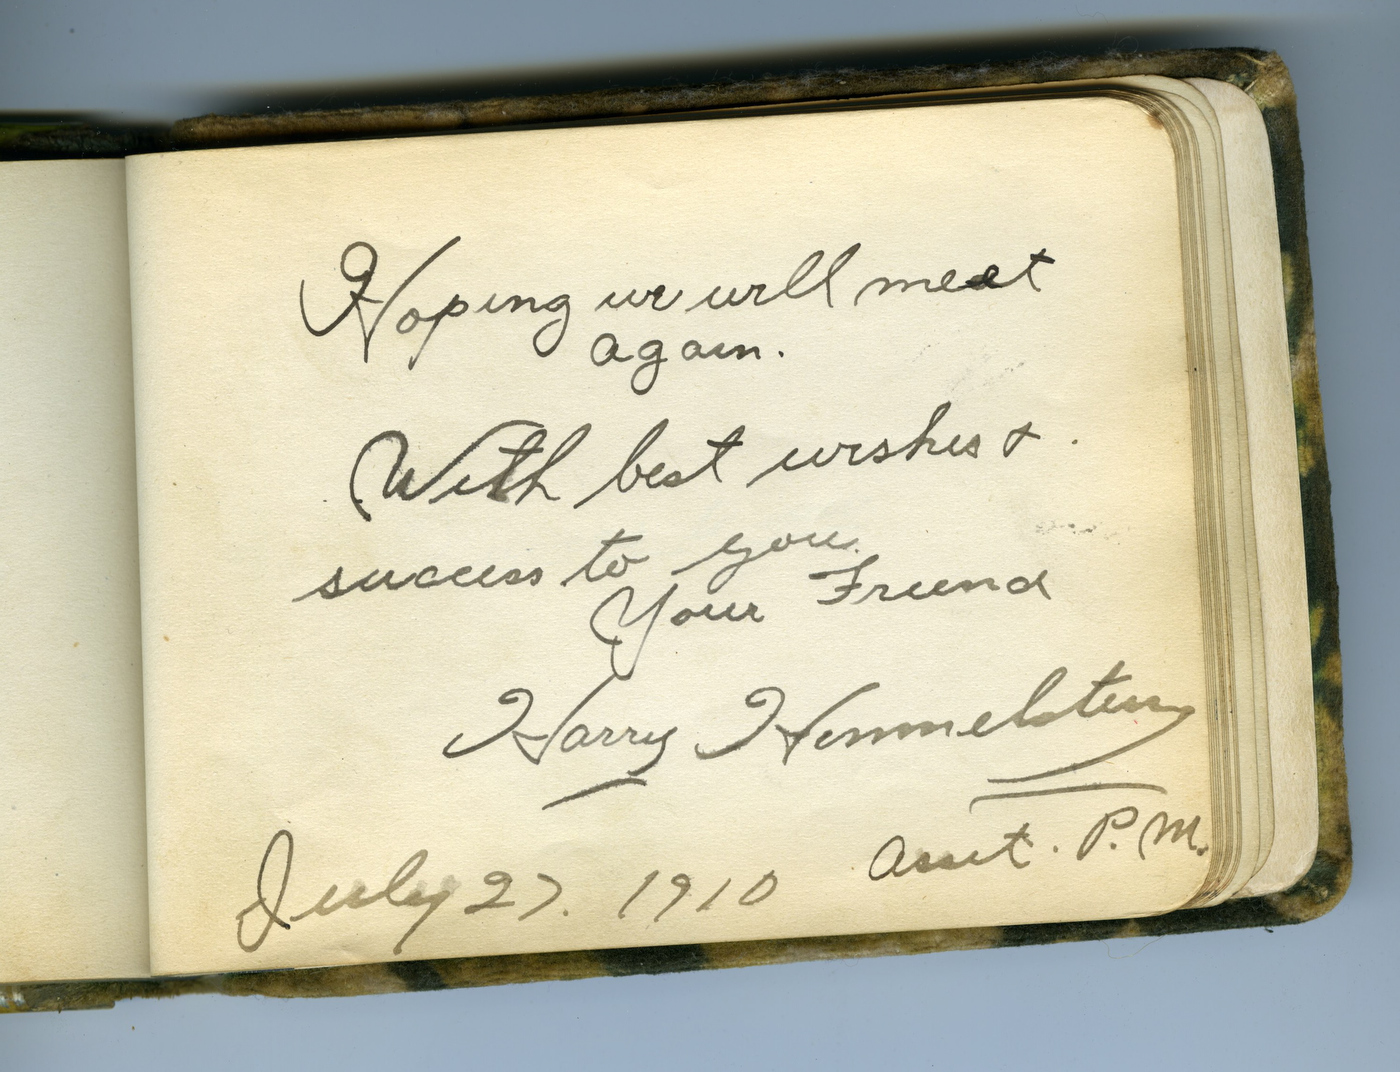 Hoping we will meet
again.
With best wishes &
success to you.
Your Friend
Harry Himmelstein
July 27. 1910
Asst. P.M.